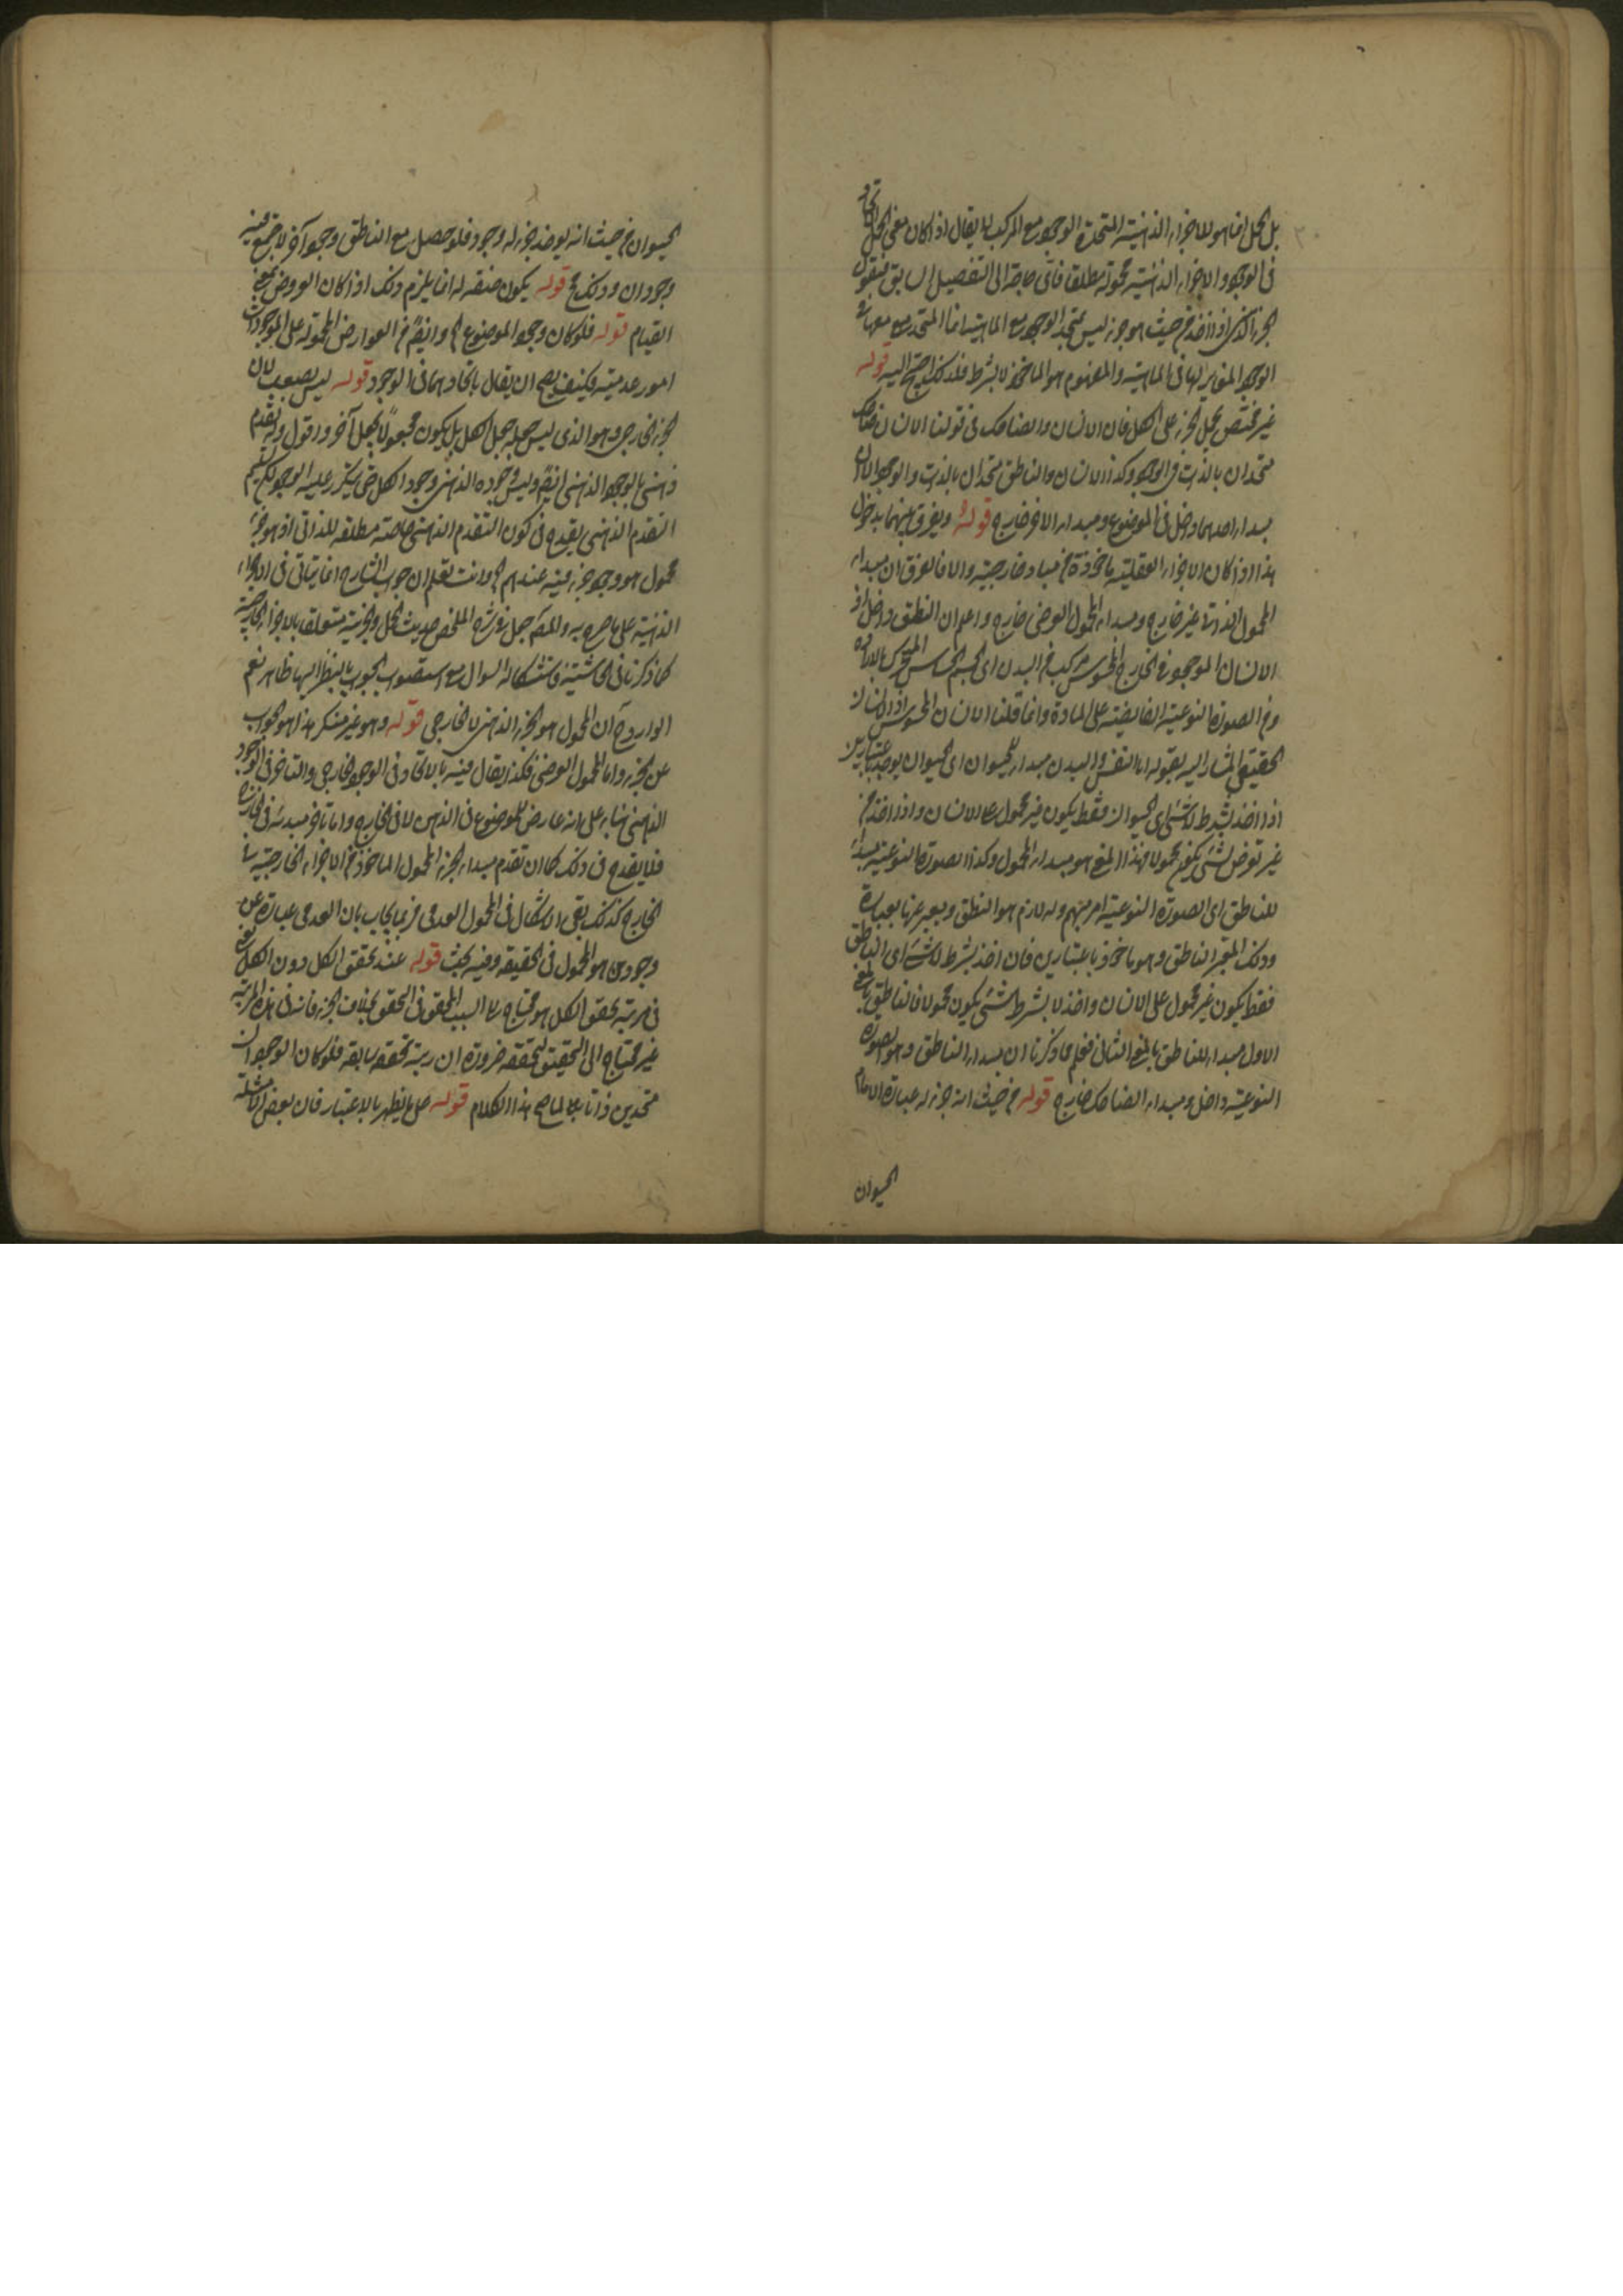 بل الحمل انما هو للاجزاء الذهنية المتحدة الوجود مع المركب لا يقال اذا كان معنى الحمل اتحاد
فى الوجود والاجزاء الذهنية محمولة مطلقا فاى حاجة الى التفصيل السابق فنقول
الجزء الذهنى اذا اخذ من حيث هو جزء ليس بمتحد الوجود مع الماهية انما المتحد معه معها فى
الوجود المغاير لها فى الماهية والمفهوم هو الماخوذ لا بشرط فلذلك احتج اليه قوله
غير مختص بحمل الجزء على الكل فان الانسان والضاحك فى قولنا الانسان ضاحك
متحدان بالذات والوجود وكذا الانسان والناطق متحدان بالذات والوجود الا ان
مبدا احدهما داخل فى الموضوع ومبدا الاخر خارج قوله ويفرق بينهما بدخول
هذا اذا كان الاجزاء العقلية ماخوذة من مباد خارجية والا فالفرق ان مبدا
المحمول الذاتى غير خارج ومبدا المحمول العرضى خارج واعلم ان النطق داخل اذ
الانسان الموجود فى الخارج المحسوس مركب من البدن اى الجسم الحساس المتحرك بالارادة
ومن الصورة النوعية الفايضة على المادة وانما قلنا الانسان المحسوس اذ الانسان
الحقيقى المشار اليه بقوله انا النفس والبدن مبدا للحيوان اى الحيوان يوخذ باعتبارين
اذا اخذ بشرط لا شئ اى الحيوان فقط يكون غير محمول على الانسان واذا اخذ من
غير تعرض لشئ يكون محمولا فهذا المعنى هو مبدا المحمول وكذا الصورة النوعية مبدا
للناطق اى الصورة النوعية امر مبهم وله لازم هو النطق ويعبر عنها بعبارة
وذلك المعبر الناطق وهو ماخوذ باعتبارين فان اخذ بشرط لا شئ اى الناطق
فقط يكون غير محمول على الانسان واخذ لا بشرط شئ يكون محمولا فالناطق بالمعنى
الاول مبدا للناطق بالمعنى الثانى فعلم مما ذكرنا ان مبدا الناطق وهو الصورة
النوعية داخل ومبدا الضاحك خارج قوله من حيث انه جزء له عبارة الامام
الحيوان
الحيوان من حيث انه يوخذ جزء له وجود فلو حصل مع الناطق وجود آخر لاجتمع فيه
وجودان وذلك مح قوله يكون صفة له انما يلزم ذلك اذا كان العروض بمعنى
القيام قوله فلو كان وجود الموضوع وايضا من العوارض المحمولة على الموجودات
امور عدمية فكيف يصح ان يقال باتحادهما فى الوجود قوله ليس بصعب لان
الجزء الخارجى وهو الذى ليس جعله جعل الكل بل يكون مجعولا بجعل آخر واقول وله تقدم
ذهنى بالوجود الذهنى ايضا وليس وجوده الذهنى وجود الكل حتى يتكرر عليه الوجود لكن تسليم
التقدم الذهنى يقدح فى كون التقدم الذهنى خاصة مطلقة للذاتى اذ هو جزء
محمول هو وجود جزء فيه عندهم وانت تعلم ان جواب الشارح انما يتاتى فى الاجزاء
الذهنية على ما صرح به والمص جعل فى شرح الملخص حديث الحمل والجزئية متعلقا بالاجزاء الخارجية
كما ذكرنا فى الحاشية فاستشكاله السوال مع استصواب الجواب بالنظر اليها ظاهر نعم
الوارد ح ان المحمول هو الجزء الذهنى لا الخارجى قوله وهو غير منكر هذا هو الجواب
عن الجزء واما المحمول العرضى فكذا يقال فيه بالاتحاد فى الوجود الخارجى والتاخر فى الوجود
الذهنى بناء على انه عارض للموضوع فى الذهن لا فى الخارج واما تاخر مبدئه فى الخارج
فلا يقدح فى ذلك كما ان تقدم مبدا الجزء المحمول الماخوذ من الاجزاء الخارجية
الخارج كذلك بقى الاشكال فى المحمول العدمى فربما يجاب بان العدمى عبارة عن
وجودى هو المحمول فى الحقيقة وفيه بحث قوله عند تحقق الكل دون الكل
فى مرتبة تحقق الكل هو محتاج الى السبب المحقق فى التحقق بخلاف الجزء فانه فى هذه المرتبة
غير محتاج الى التحقيق لتحققه ضرورة ان رتبة تحققه سابقة فلو كان الوجود ان
متحدين ذاتا لما صح هذا الكلام قوله على ما يظهر بالاعتبار فان بعض الامثلة